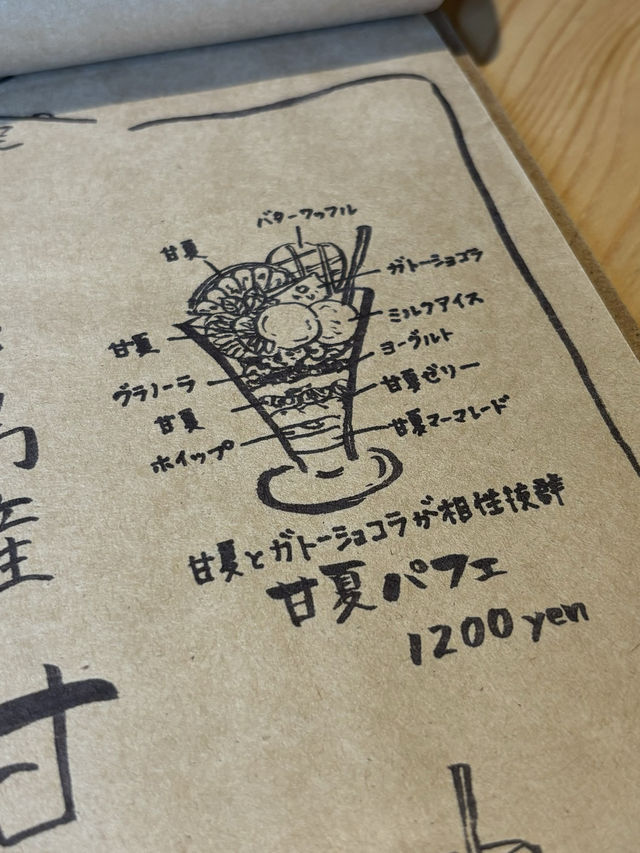 バターワッフル
甘夏
ガトーショコラ
ミルクアイス
甘夏
ヨーグルト
グラノーラ
甘夏ゼリー
甘夏
甘夏マーマレード
ホイップ
甘夏とガトーショコラが相性抜群
甘夏パフェ
1200 yen
産
甘